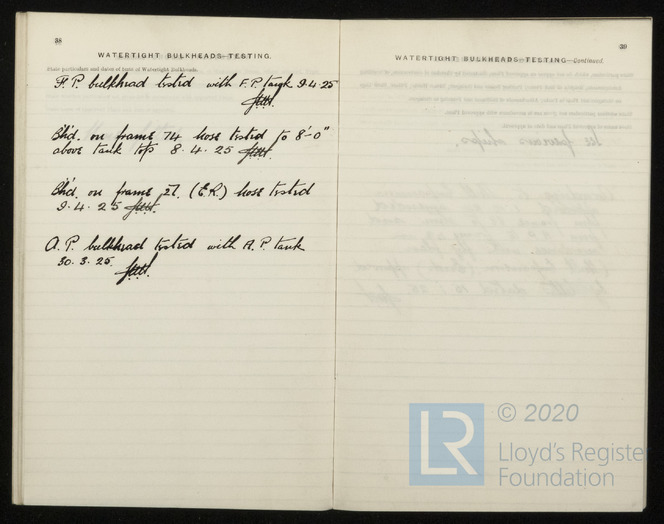 38
WATERTIGHT BULKHEADS—TESTING.
State particulars and dates of tests of Watertight Bulkheads.
F. P. bulkhead tested with F.P. tank 9.4.25
Bhd. on frame 74 hose tested to 8'-0"
above tank top 8.4.25
Bhd. on frame 27. (E.R.) hose tested
9.4.25
A. P. bulkhead tested with A.P. tank
30.3.25.
39
WATERTIGHT BULKHEADS—TESTING—Continued.
LR
© 2020
Lloyd's Register
Foundation